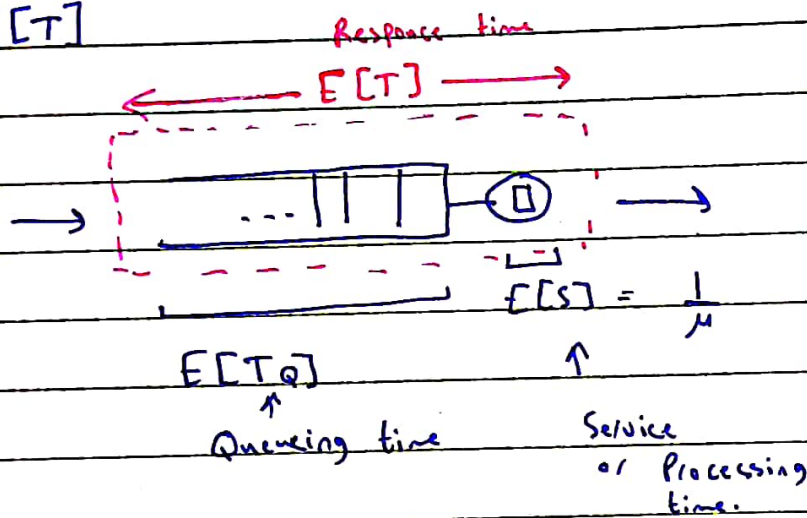 [T]
Responce time
E[T]
...
E[S] = 1/μ
E[TQ]
Queueing time
Service
or Processing
time.